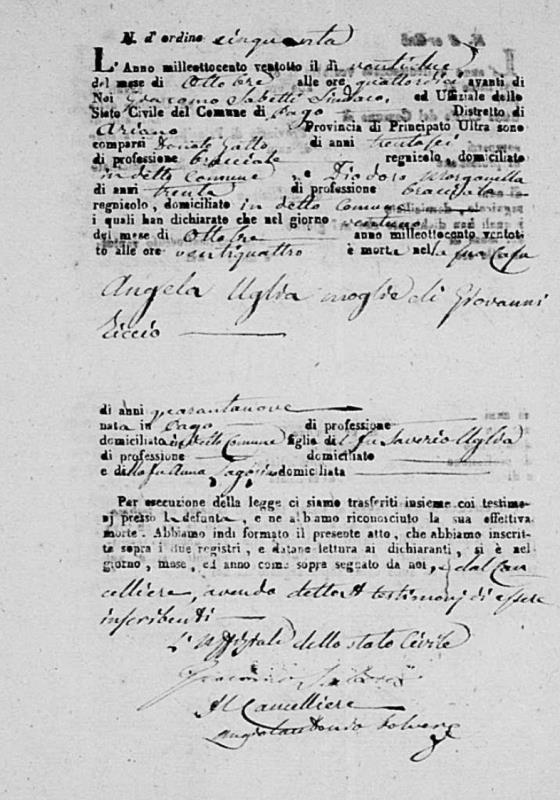 N. d'ordine cinquanta
L'Anno milleottocento ventotto il dì ventidue
del mese di Ottobre alle ore quattordici avanti di
Noi Giacomo Sabetti Sindaco, ed Uffiziale dello
Stato Civile del Comune di Pago Distretto di
Ariano Provincia di Principato Ultra sono
comparsi Donato Gallo di anni trentasei
di professione bracciale regnicolo, domiciliato
in detto Comune, e Diodoro
di anni trenta di professione bracciale
regnicolo, domiciliato in detto Comune
i quali han dichiarato che nel giorno ventuno
del mese di Ottobre anno milleottocento ventot-
to alle ore ventiquattro è morta nella sua Casa
Angela Uglia moglie di Giovanni
Ziccio
di anni quarantanove
nata in Pago di professione
domiciliata in detto Comune figlia del fu Saverio Uglia
di professione domiciliato
e della fu Anna domiciliata
Per esecuzione della legge ci siamo trasferiti insieme coi testimo-
nj presso la defunta, e ne abbamo riconosciuto la sua effettiva
morte. Abbiamo indi formato il presente atto, che abbiamo inscrit-
to sopra i due registri, e datane lettura ai dichiaranti, si è nel
giorno, mese, ed anno come sopra segnato da noi, e dal Can
celliere, avendo detto testimonj di essere
inscribenti
L'Uffiziale dello stato Civile
Giacomo Sabetti
Il Cancelliere